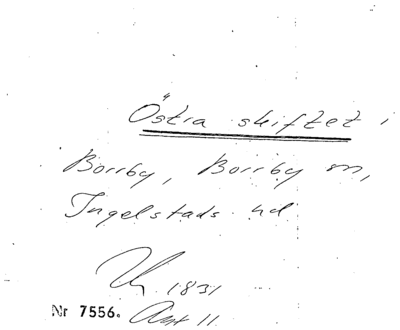 Östra skiftet i
Borrby, Borrby sn,
Ingelstads hd
1831
Nr 7556.